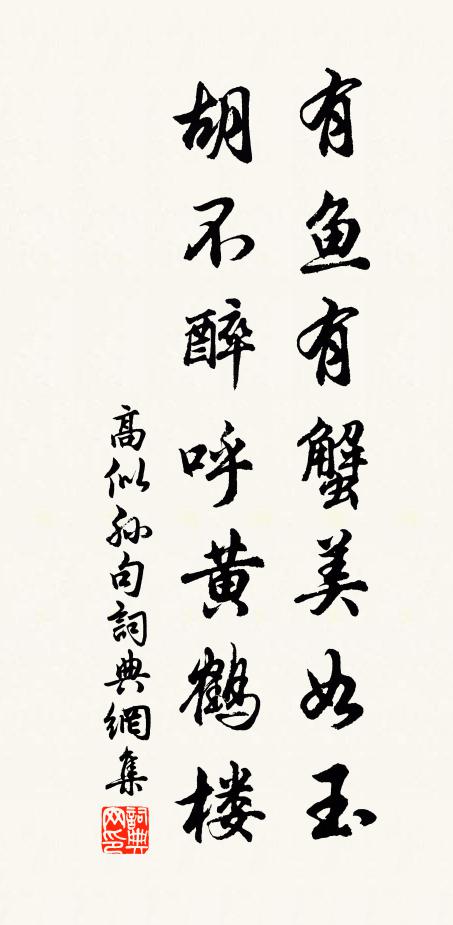 有鱼有蟹美如玉
胡不醉呼黄鹤楼
高似孙句詞典網集
詞典网印